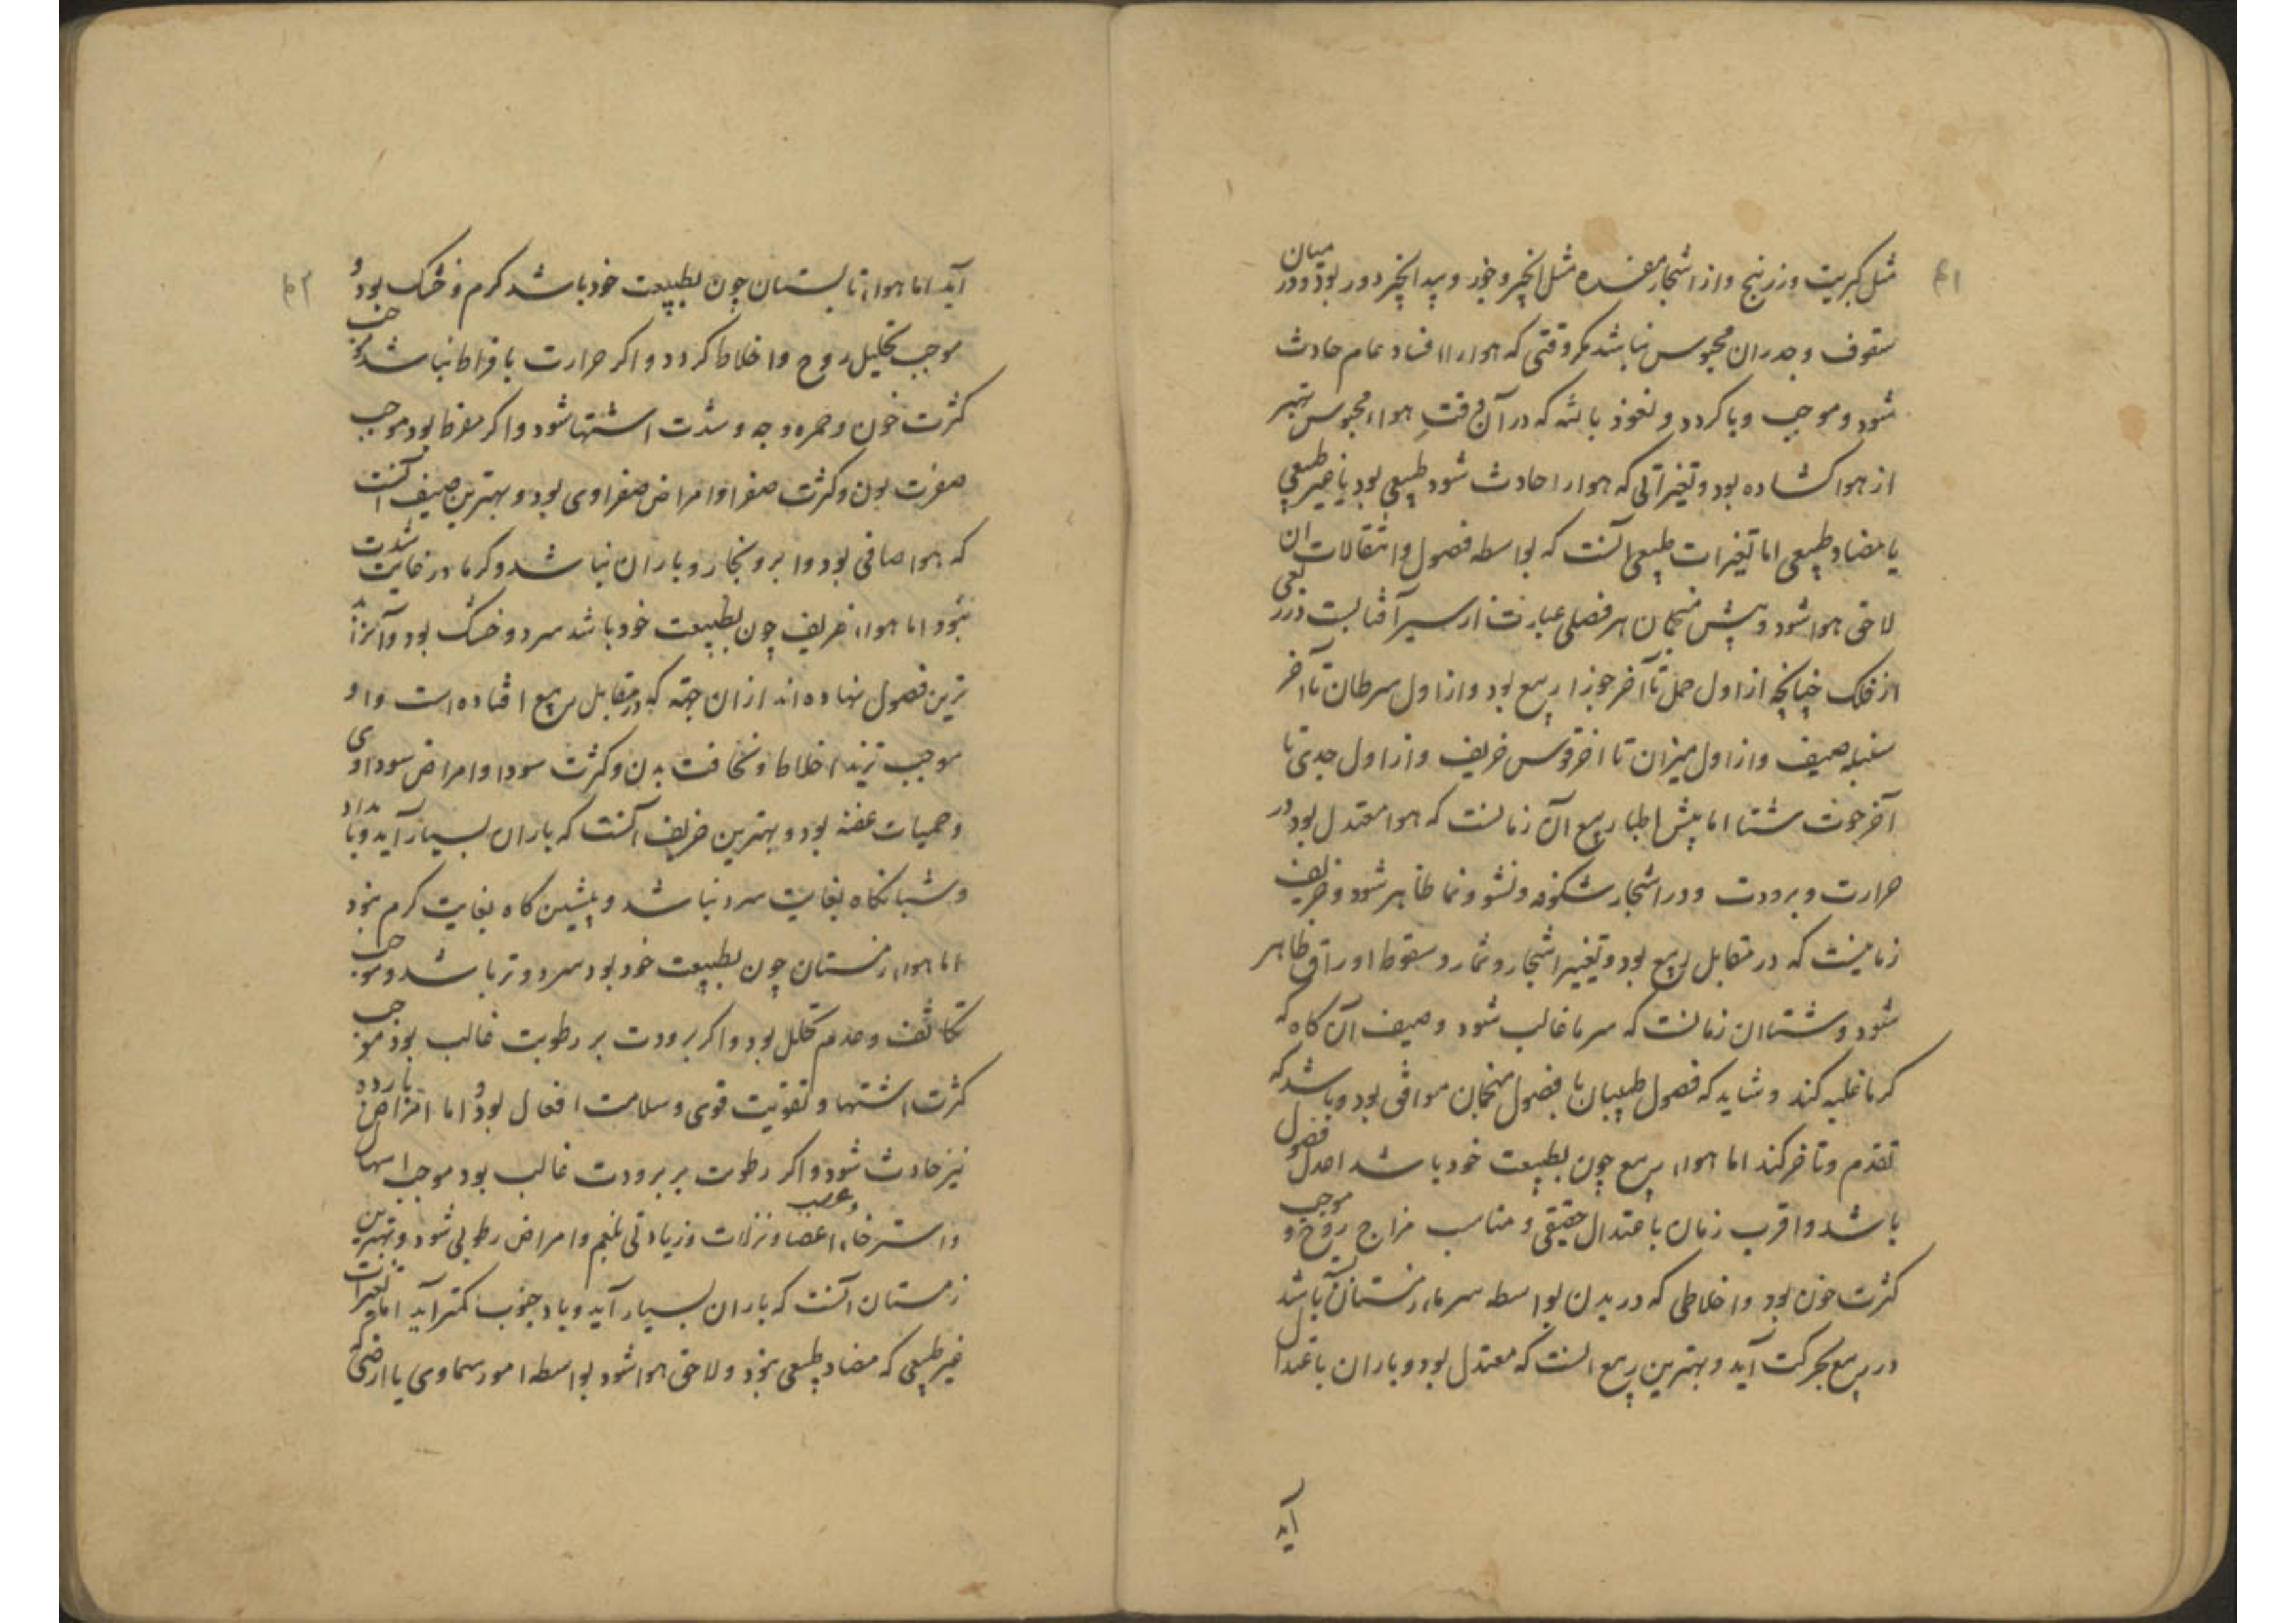 ۴۱
مثل کبریت و زرنیخ و از اشجار مفسده مثل انجیر و جوز و بید انجیر دور بود و در میان
سقوف و جدران محبوس نباشد مکر وقتی که هوا را افساد عام حادث
شود و موجب وبا کردد و نعوذ بالله که در آن وقت هواء محبوس بهتر
از هوا کشاده بود و تغیراتی که هوا را حادث شود طبیعی بود یا غیر طبیعی
یا مضاد طبیعی اما تغیرات طبیعی آنست که بواسطه فصول و انتقالات ان
لاحق هوا شود و پیش منجمان هر فصلی عبارت از سیر آفتابست در ربعی
از فلک چنانچه از اول حمل تا آخر جوزا ربیع بود و از اول سرطان تا آخر
سنبله صیف و از اول میزان تا اخر قوس خریف و از اول جدی تا
آخر حوت شتا اما پیش اطبا ربیع آن زمانست که هوا معتدل بود در
حرارت و برودت و در اشجار شکوفه و نشو و نما ظاهر شود و خریف
زمانیست که در مقابل ربیع بود و تغییر اشجار و ثمار و سقوط اوراق ظاهر
شود و شتا ان زمانست که سرما غالب شود و صیف آن کاه که
کرما غلبه کند و شاید که فصول طبیبان با فصول منجمان موافق بود و باشد که
تقدم و تاخر کند اما هواء ربیع چون بطبیعت خود باشد اعدل فصول
باشد و اقرب زمان باعتدال حقیقی و مناسب مزاج روح و موجب
کثرت خون بود و اخلاطی که در بدن بواسطه سرماء زمستان باشد
در ربیع بحرکت آید و بهترین ربیع انست که معتدل بود و باران باعتدال
آید
۴۲
آید اما هواء تابستان چون بطبیعت خود باشد کرم و خشک بود و
موجب تحلیل روح و اخلاط کردد و اکر حرارت بافراط نباشد موجب
کثرت خون و حمره وجه و شدت اشتها شود و اکر مفرط بود موجب
صفرت لون و کثرت صفرا و امراض صفراوی بود و بهترین صیف آنست
که هوا صافی بود و ابر و بخار و باران نباشد و کرما در غایت شدت
نبود اما هواء خریف چون بطبیعت خود باشد سرد و خشک بود و آنرا بد
ترین فصول نهاده اند ازان جهه که در مقابل ربیع افتاده است و او
موجب تزید اخلاط و نحافت بدن و کثرت سودا و امراض سوداوی
و حمیات عفنه بود و بهترین خریف آنست که باران بسیار آید و بامداد
و شبانکاه بغایت سرد نباشد و پیشین کاه بغایت کرم نبود
اما هواء زمستان چون بطبیعت خود بود سرد و تر باشد و موجب
تکاثف و عدم تحلل بود و اکر برودت بر رطوبت غالب بود موجب
کثرت اشتها و تقویت قوی و سلامت افعال بود و اما امراض بارده
نیز حادث شود و اکر رطوبت بر برودت غالب بود موجب اسهال
و استرخاء اعضا و عصب و نزلات و زیادتی بلغم و امراض رطوبی شود و بهترین
زمستان آنست که باران بسیار آید و باد جنوب کمتر آید اما تغیرات
غیر طبیعی که مضاد طبیعی نبود و لاحق هوا شود بواسطه امور سماوی یا ارضی